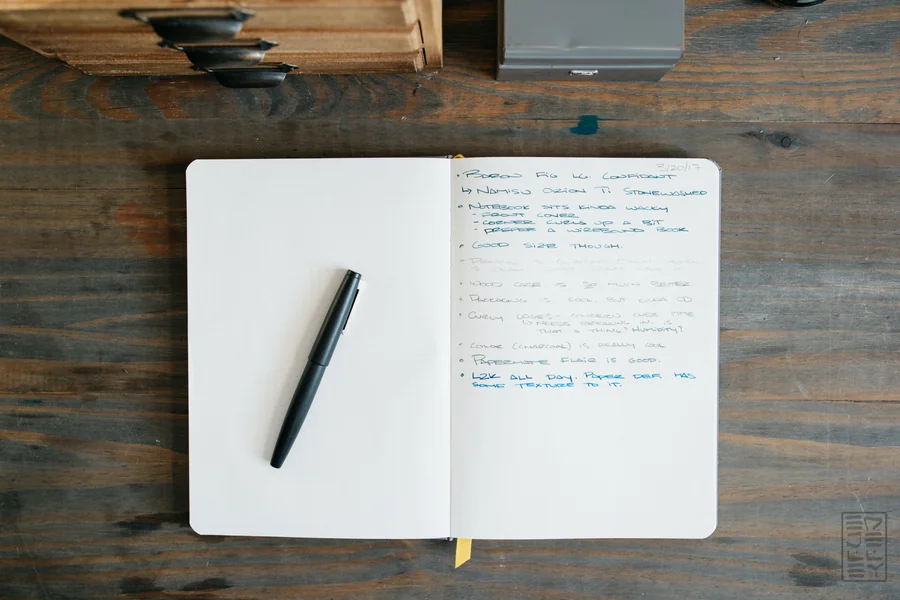 3/20/17
• BARON FIG LG. CONFIDANT
↳ NAMISU ORION TI STONEWASHED
• NOTEBOOK SITS KINDA WACKY
- FRONT COVER
- CORNER CURLS UP A BIT
- PREFER A WIREBOUND BOOK
• GOOD SIZE THOUGH.
• WOOD CASE IS MUCH BETTER
• PACKAGING IS COOL, BUT
• CURLY PAGES - CONCERN OVER TIME
IS
THAT A THING? HUMIDITY?
• COLOR (CHARCOAL) IS REALLY COOL
• PAPERMATE FLAIR IS GOOD.
• L2K ALL DAY. PAPER DEF. HAS
SOME TEXTURE TO IT.